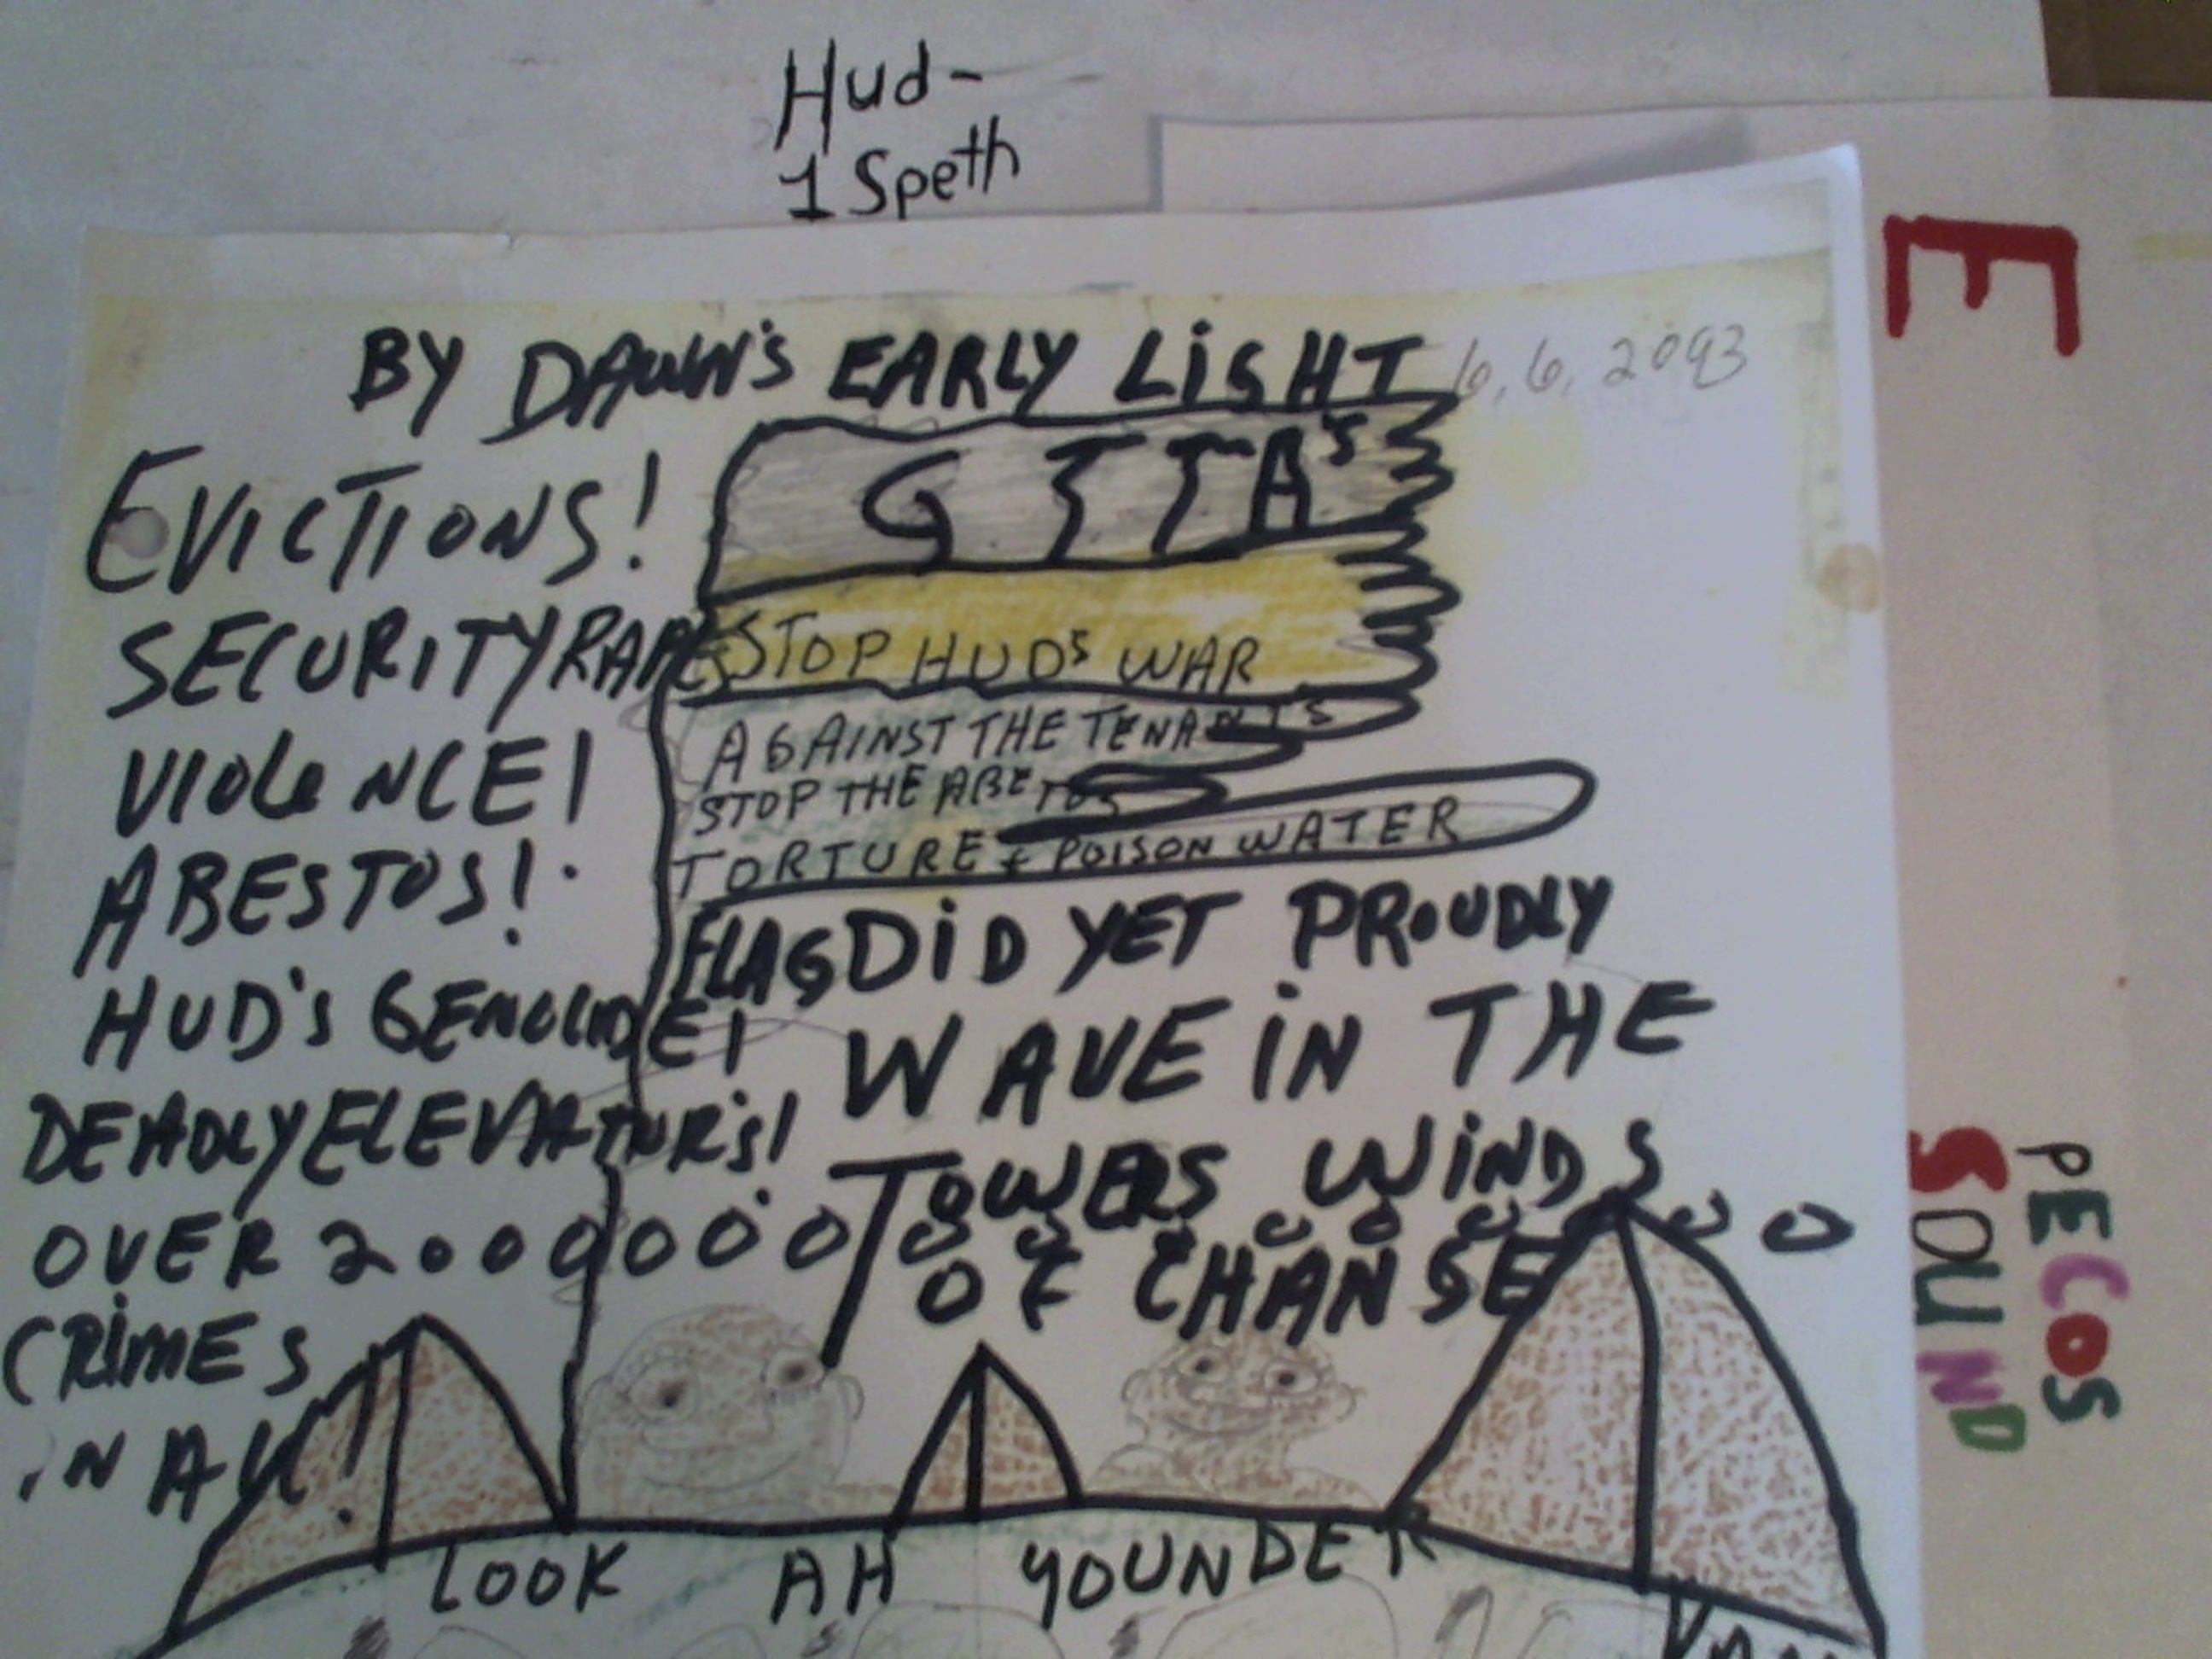 Hud-
1 Speth
E
BY DAWN'S EARLY LIGHT
6, 6, 2093
GTTA'S
EVICTIONS!
SECURITYRAPES
STOP HUDS WAR
AGAINST THE TENANTS
VIOLENCE!
STOP THE ABETOS
TORTURE & POISON WATER
ABESTOS!
FLAG DID YET PROUDLY
HUD'S GENOCIDE!
WAVE IN THE
DEADLY ELEVATUR'S!
TOWERS WINDS
OVER 2000000
OF CHANGE
CRIMES
IN ALL!
LOOK AH YOUNDER
PECOS
SOUND